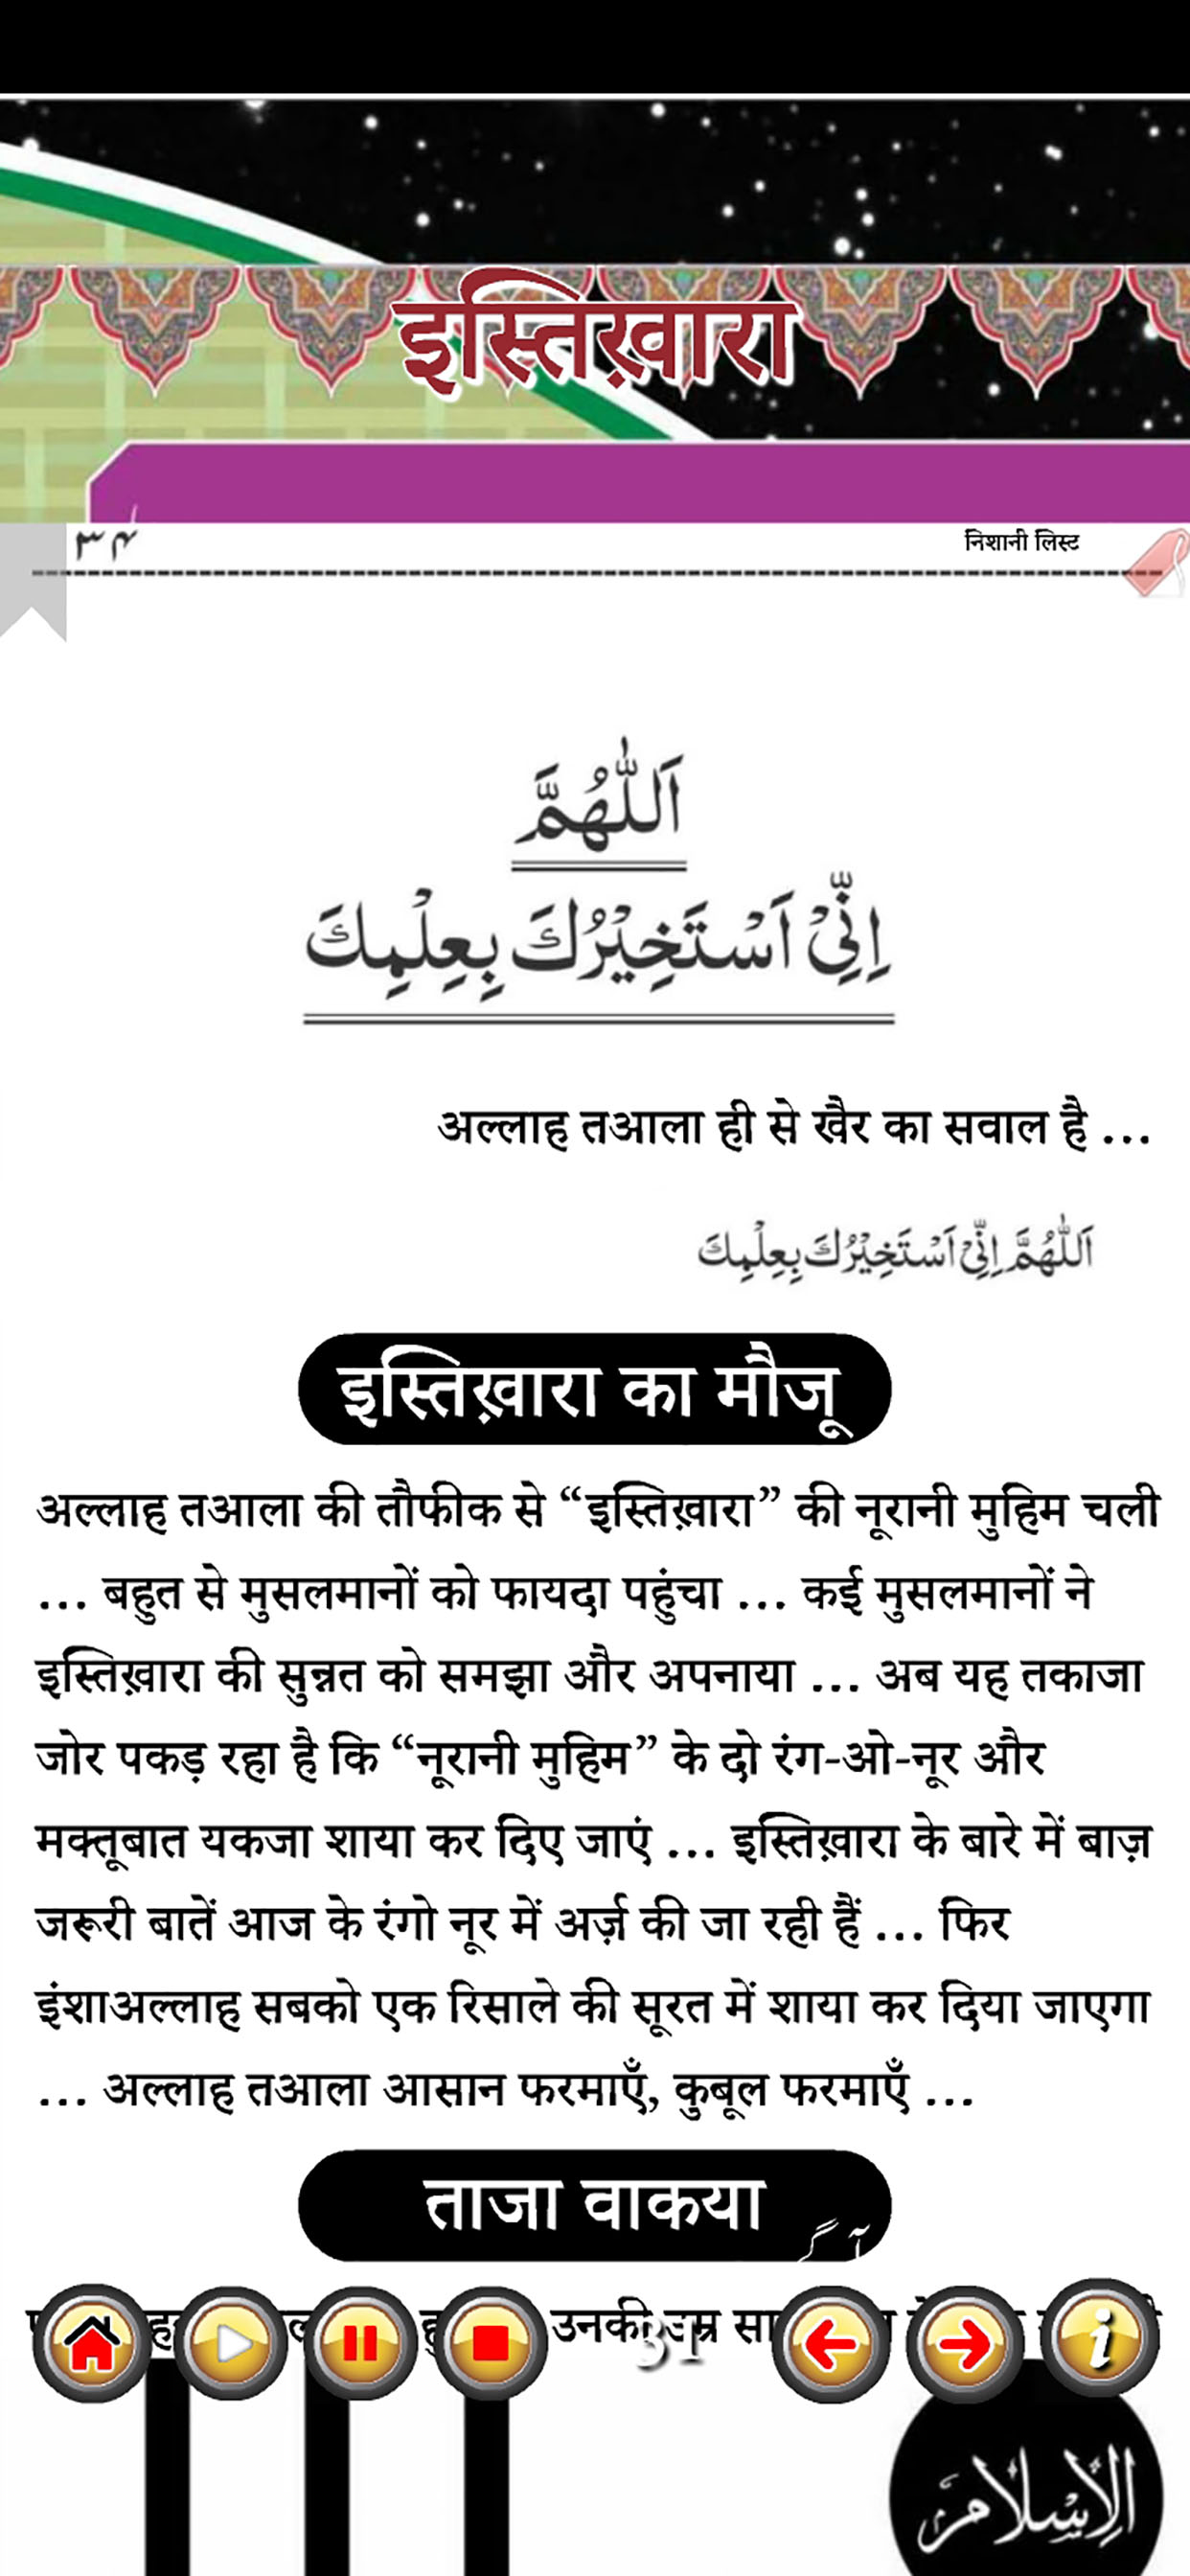 इस्तिख़ारा
۳۴
निशानी लिस्ट
اَللّٰهُمَّ
اِنِّیْ اَسْتَخِیْرُكَ بِعِلْمِكَ
अल्लाह तआला ही से खैर का सवाल है ...
اَللّٰهُمَّ اِنِّیْ اَسْتَخِیْرُكَ بِعِلْمِكَ
इस्तिख़ारा का मौजू
अल्लाह तआला की तौफीक से “इस्तिख़ारा” की नूरानी मुहिम चली
... बहुत से मुसलमानों को फायदा पहुंचा ... कई मुसलमानों ने
इस्तिख़ारा की सुन्नत को समझा और अपनाया ... अब यह तकाजा
जोर पकड़ रहा है कि “नूरानी मुहिम” के दो रंग-ओ-नूर और
मक्तूबात यकजा शाया कर दिए जाएं ... इस्तिख़ारा के बारे में बाज़
जरूरी बातें आज के रंगो नूर में अर्ज़ की जा रही हैं ... फिर
इंशाअल्लाह सबको एक रिसाले की सूरत में शाया कर दिया जाएगा
... अल्लाह तआला आसान फरमाएँ, कुबूल फरमाएँ ...
ताजा वाकया
उनकी उम्र
31
الإسلام